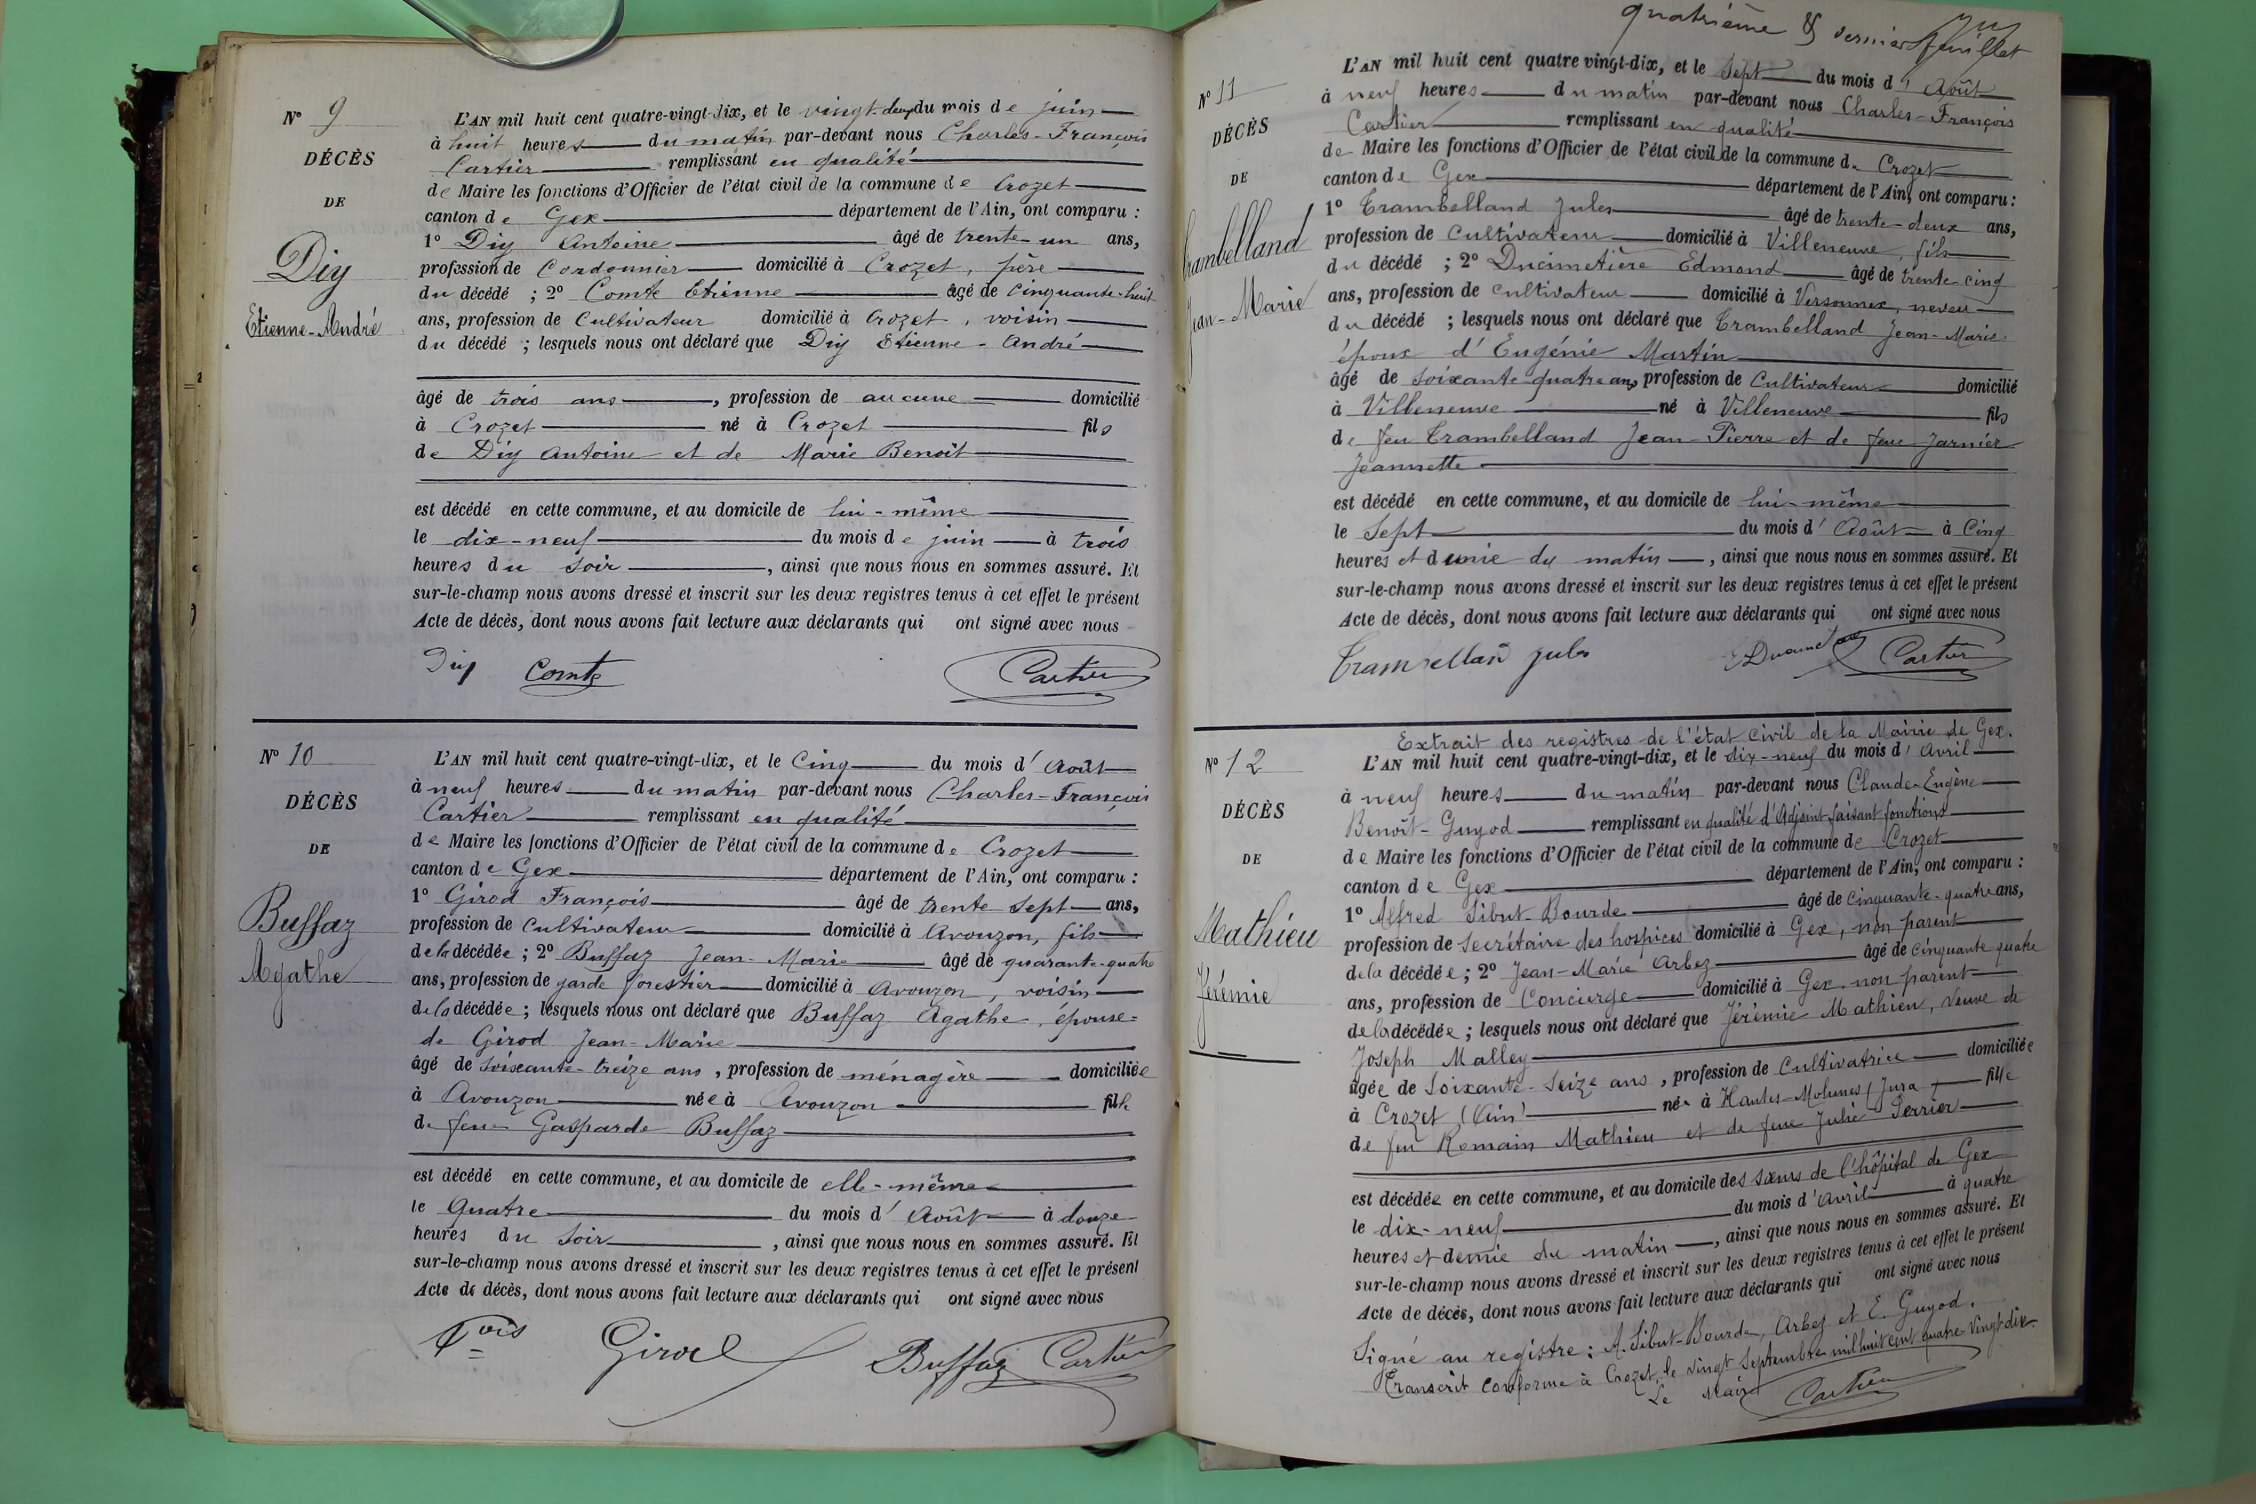 N° 9
DÉCÈS
DE
Diy
Etienne-André
L'AN mil huit cent quatre-vingt-dix, et le vingt-deux du mois de juin
à huit heures du matin par-devant nous Charles-François
Cartier remplissant en qualité
de Maire les fonctions d'Officier de l'état civil de la commune de Crozet
canton de Gex département de l'Ain, ont comparu :
1° Diy Antoine âgé de trente-un ans,
profession de Cordonnier domicilié à Crozet, père
du décédé ; 2° Comte Etienne âgé de cinquante-huit
ans, profession de Cultivateur domicilié à Crozet, voisin
du décédé ; lesquels nous ont déclaré que Diy Etienne-André
âgé de trois ans, profession de aucune domicilié
à Crozet né à Crozet fils
de Diy Antoine et de Marie Benoit
est décédé en cette commune, et au domicile de lui-même
le dix-neuf du mois de juin à trois
heures du soir, ainsi que nous nous en sommes assuré. Et
sur-le-champ nous avons dressé et inscrit sur les deux registres tenus à cet effet le présent
Acte de décès, dont nous avons fait lecture aux déclarants qui ont signé avec nous
Diy Comte Cartier
N° 10
DÉCÈS
DE
Buffaz
Agathe
L'AN mil huit cent quatre-vingt-dix, et le Cinq du mois d'Août
à neuf heures du matin par-devant nous Charles-François
Cartier remplissant en qualité
de Maire les fonctions d'Officier de l'état civil de la commune de Crozet
canton de Gex département de l'Ain, ont comparu :
1° Girod François âgé de trente sept ans,
profession de Cultivateur domicilié à Avouzon, fils
de la décédée ; 2° Buffaz Jean-Marie âgé de quarante-quatre
ans, profession de garde forestier domicilié à Avouzon, voisin
de la décédée ; lesquels nous ont déclaré que Buffaz Agathe, épouse=
de Girod Jean-Marie
âgé de soixante-treize ans, profession de ménagère domiciliée
à Avouzon née à Avouzon fille
de feue Gasparde Buffaz
est décédé en cette commune, et au domicile de elle-même
le Quatre du mois d'Août à douze
heures du soir, ainsi que nous nous en sommes assuré. Et
sur-le-champ nous avons dressé et inscrit sur les deux registres tenus à cet effet le présent
Acte de décès, dont nous avons fait lecture aux déclarants qui ont signé avec nous
Fçois Girod Buffaz Cartier
quatrième & dernier feuillet
N° 11
DÉCÈS
DE
Trambelland
Jean-Marie
L'AN mil huit cent quatre vingt-dix, et le Sept du mois d'Août
à neuf heures du matin par-devant nous Charles-François
Cartier remplissant en qualité
de Maire les fonctions d'Officier de l'état civil de la commune de Crozet
canton de Gex département de l'Ain, ont comparu :
1° Trambelland Jules âgé de trente-deux ans,
profession de Cultivateur domicilié à Villeneuve, fils
du décédé ; 2° Ducimetière Edmond âgé de trente cinq
ans, profession de Cultivateur domicilié à Versonnex, neveu
du décédé ; lesquels nous ont déclaré que Trambelland Jean-Marie
époux d'Eugénie Martin
âgé de soixante-quatre ans, profession de Cultivateur domicilié
à Villeneuve né à Villeneuve fils
de feu Trambelland Jean-Pierre et de feue Jarnier
Jeannette
est décédé en cette commune, et au domicile de lui-même
le Sept du mois d'Août à Cinq
heures et demie du matin, ainsi que nous nous en sommes assuré. Et
sur-le-champ nous avons dressé et inscrit sur les deux registres tenus à cet effet le présent
Acte de décès, dont nous avons fait lecture aux déclarants qui ont signé avec nous
Trambelland jules Cartier
N° 12
DÉCÈS
DE
Mathieu
Jérémie
Extrait des registres de l'état civil de la Mairie de Gex.
L'AN mil huit cent quatre-vingt-dix, et le dix-neuf du mois d'Avril
à neuf heures du matin par-devant nous Claude-Eugène
Benoît-Guyod remplissant en qualité d'Adjoint faisant fonctions
de Maire les fonctions d'Officier de l'état civil de la commune de Crozet
canton de Gex département de l'Ain, ont comparu :
1° Alfred Sibut-Bourde âgé de cinquante-quatre ans,
profession de secrétaire des hospices domicilié à Gex, non parent
de la décédée ; 2° Jean-Marie Arbez âgé de cinquante quatre
ans, profession de Concierge domicilié à Gex, non parent
de la décédée ; lesquels nous ont déclaré que Jérémie Mathieu, veuve de
Joseph Malley
âgée de soixante-seize ans, profession de Cultivatrice domiciliée
à Crozet (Ain) née à Hautes-Molunes (Jura) fille
de feu Romain Mathieu et de feue Julie Perrier
est décédée en cette commune, et au domicile des soeurs de l'hôpital de Gex
le dix-neuf du mois d'Avril à quatre
heures et demie du matin, ainsi que nous nous en sommes assuré. Et
sur-le-champ nous avons dressé et inscrit sur les deux registres tenus à cet effet le présent
Acte de décès, dont nous avons fait lecture aux déclarants qui ont signé avec nous
Signé au registre : A. Sibut-Bourde, Arbez et E. Guyod.
Transcrit conforme à Crozet, le vingt Septembre mil huit cent quatre-vingt-dix.
Le Maire Cartier